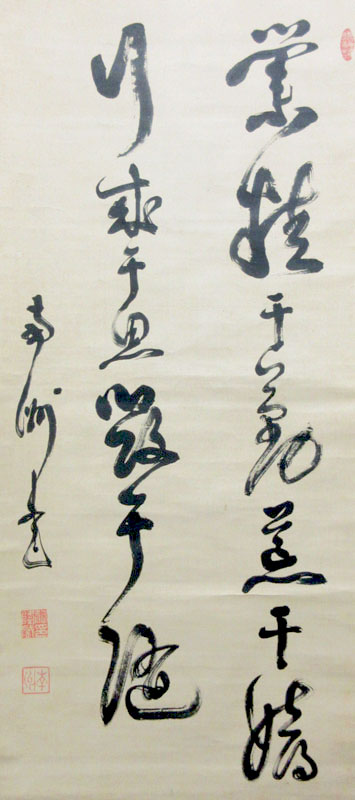 業精于勤荒于嬉
行成于思毀于随
南洲書